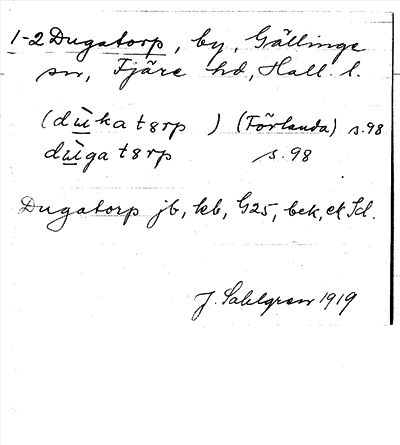 1-2 Dugatorp, by, Gällinge
sn, Fjäre hd, Hall. l.
(dùkatorp ) (Förlanda) s.98
dùgatorp s.98
Dugatorp jb, kb, G25, bek, ek Id.
J. Sahlgren 1919